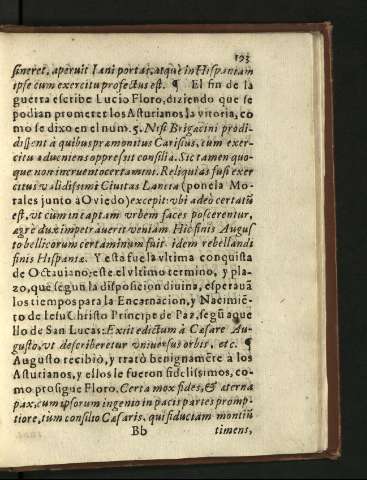 193
sineret, aperuit Iani portas, atque in Hispaniam
ipse cum exercitu profectus est. ¶ El fin de la
guerra escribe Lucio Floro, diziendo que se
podian prometer los Asturianos la vitoria, co
mo se dixo en el num. 5. Nisi Brigacini prodi-
dissent à quibus præmonitus Carisius, cum exer-
citu adueniens oppressit consilia. Sic tamen quo-
que non incruento certamine. Reliquias fusi exer
citus validissimi Ciuitas Lancia (ponela Mo-
rales junto a Ouiedo) excepit: vbi adeò certatũ
est, vt cum in captam vrbem faces poscerentur,
ægrè dux impetrauerit veniam Hic finis Augus
to bellicorum certaminum fuit idem rebellandi
finis Hispaniæ. Y esta fue la vltima conquista
de Octauiano; este el vltimo termino, y pla-
zo, que segun la disposicion diuina, esperauã
los tiempos para la Encarnacion, y Nacimiẽ-
to de Iesu Christo Principe de Paz, segũ aque
llo de San Lucas: Exijt edictum à Cæsare Au-
gusto, vt describeretur vniuersus orbis, etc. ¶
Augusto recibiò, y tratò benignamẽte a los
Asturianos, y ellos le fueron fidelissimos, co-
mo prosigue Floro. Certa mox fides, & æterna
pax, cum ipsorum ingenio in pacis partes promp-
tiore, tum consilio Cæsaris, qui fiduciam montiũ
Bb timens,